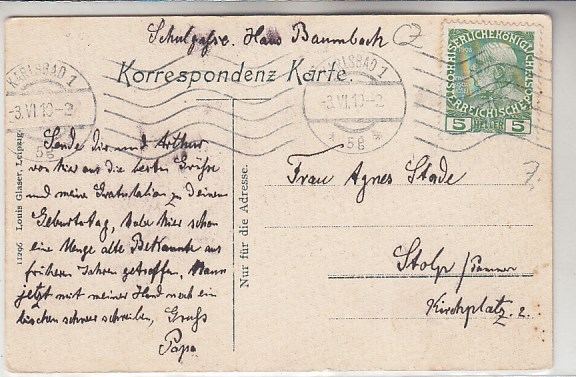 Schulgasse. Haus Baumbach
Korrespondenz-Karte.
KARLSBAD 1
-3.VI.10-2
* 5g *
KARLSBAD 1
-3.VI.10-2
* 5g *
KAISERLICHE KÖNIGLICHE
ÖSTERREICHISCHE POST
5 HELLER 5
Sende dir und Arthur
von hier aus die besten Grüße
und meine Gratulation zu Deinem
Geburtstag, habe hier schon
eine Menge alte Bekannte aus
früheren Jahren getroffen. Kann
jetzt mit meiner Hand noch ein
bischen schwer schreiben, Gruß
Papa
11296 Louis Glaser, Leipzig.
Nur für die Adresse.
Frau Agnes Stade
Stolp / Pommern
Kirchplatz 2.
7.